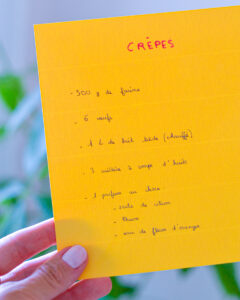 CRÊPES
- 500 g de farine
- 6 œufs
- 1 L de lait tiède (chauffé)
- 3 cuillère à soupe d'huile
- parfum au choix
- zeste de citron
- Rhum
- eau de fleur d'oranger